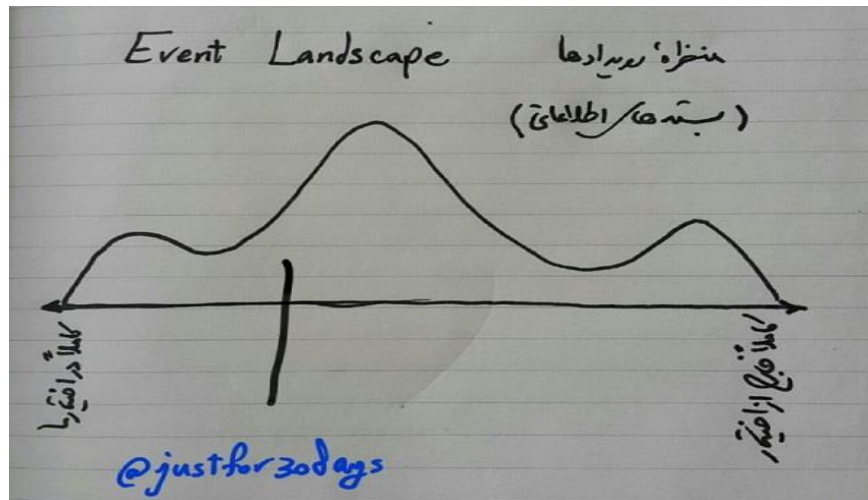 Event Landscape
منظره رویدادها
(بسته های اطلاعاتی)
کاملاً در اختیار ما
کاملاً خارج از اختیار
@justfor30days